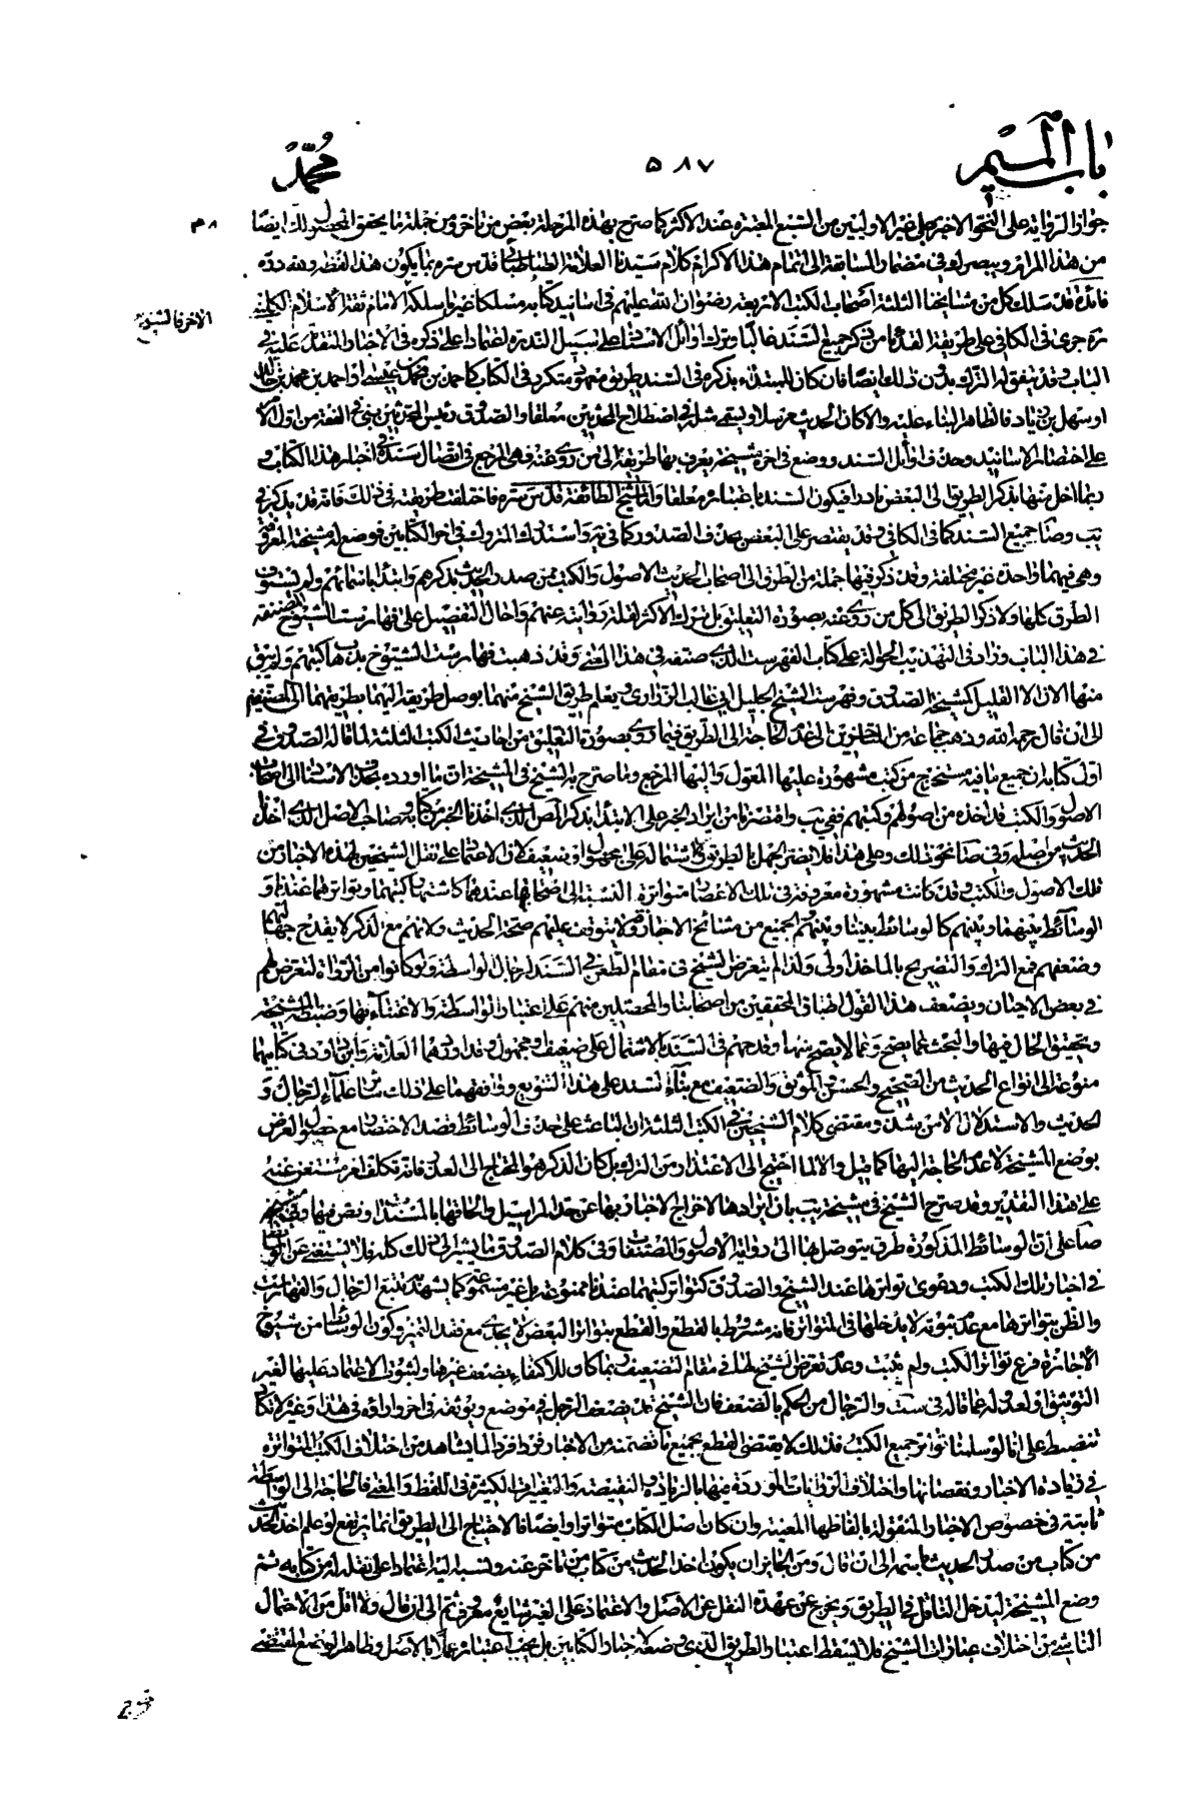 باب الميم
٥٨٧
محمد
جواز الرواية على النحو الاخير على غير الاولين من الشيع المعتبرة عند الاكثر كما صرح بهذه المرحلة بعض من تاخر ومن جملة ما يحقق لك ايضا
من هذا المرام ويبصرك في مضمار السابقة الى اتمام هذا الاكرام كلام سيدنا العلامة الطباطبائي قدس سره بما يكون هذا لفظه ولله دره
فائدة قد سلك كل من مشايخنا الثلثة اصحاب الكتب الاربعة رضوان الله عليهم في اسانيد كتابه مسلكا غير ما سلكه الاخر فالشيخ الامام ثقة الاسلام الكليني
ره جرى في الكافي على طريقة القدماء من ذكر جميع السند غالبا وترك اوائل الاسناد على سبيل الندرة اعتمادا على ذكره في الاخبار المتقدمة عليه في
الباب وقد يتفق له الترك بدون ذلك ايضا فان كان للمبتدء بذكره في السند طريق معهود متكرر في الكتاب كاحمد بن محمد بن عيسى او احمد بن محمد بن خالد
او سهل بن زياد فالظاهر البناء عليه والا كان الحديث مرسلا ويسمى مثله في اصطلاح المحدثين معلقا والصدوق رئيس المحدثين بنى في الفقيه من اول الامر
على اختصار الاسانيد وحذف اوائل السند ووضع في اخره مشيخة يعرف بها طريقه الى من روى عنه فهي المرجع في اتصال سنده في اخبار هذا الكتاب و
ربما اخل فيها بذكر الطريق الى البعض نادرا فيكون السند باعتباره معلقا واما شيخ الطائفة قدس سره فاختلفت طريقته في ذلك فانه قد يذكر في
يب وصا جميع السند كما في الكافي وقد يقتصر على البعض بحذف الصدور كما في يه واستدرك المتروك في اخر الكتابين فوضع له مشيخته المعروفة
وهي فيهما واحدة غير مختلفة وقد ذكر فيها جملة من الطرق الى اصحاب الحديث الاصول والكتب ممن صدر الحديث بذكرهم وابتدء باسمائهم ولم يستوف
الطرق كلها ولا ذكر الطريق الى كل من روى عنه بصورة التعليق بل ترك الاكثر لقلة روايته عنهم واحال التفصيل على فهارست الشيوخ المصنفة
في هذا الباب وزاد في التهذيب الحوالة على كتاب الفهرست الذي صنفه في هذا المعنى وقد ذهبت فهارست الشيوخ بذهاب كتبهم ولم يبق
منها الان الا القليل كمشيخة الصدوق وفهرست الشيخ الجليل ابي غالب الزراري ويعلم طريق الشيخ منهما بوصل طريقه اليهما بطريقهما الى المصنفين
الى ان قال رحمه الله وذهب جماعة من المتاخرين الى عدم الحاجة الى الطريق فيما روى بصورة التعليق من احاديث الكتب الثلثة لما قاله الصدوق في
اول كتابه ان جميع ما فيه مستخرج من كتب مشهورة عليها المعول واليها المرجع وما صرح به الشيخ في المشيخة ان ما اورده بحذف الاسناد الى اصحاب
الاصول والكتب قد اخذه من اصولهم وكتبهم ففي يب واقتصرنا من ايراد الخبر على الابتداء بذكر المصنف الذي اخذنا الخبر من كتابه وصاحب الاصل الذي اخذنا
الحديث من اصله وفي صا نحو ذلك وعلى هذا فلا يضر الجهل بالطريق ولا اشتماله على مجهول او ضعيف لان الاعتماد على نقل الشيخين لهذه الاخبار من
تلك الاصول والكتب وقد كانت مشهورة معروفة في تلك الاعصار متواترة النسبة الى اصحابها عندهما كاشتهار كتبهما وتواترهما عندنا و
الوسائط بينهما وبينهم كالوسائط بيننا وبينهم والجميع من مشائخ الاجازة ولا يتوقف عليهم صحة الحديث ولانهم مع الذكر لا يقدح جهالتهم
وضعفهم فمع الترك والتصريح بالماخذ اولى ولذا لم يتعرض الشيخ في مقام الطعن في السند لرجال الواسطة ولو كانوا من الرواة لتعرض لهم
في بعض الاحيان ويضعف هذا القول اطباق المحققين من اصحابنا والمحصلين منهم على اعتبار الواسطة والاعتناء بها وضبط المشيخة
وتحقيق الحال فيها والبحث عما يصح وعما لا يصح منها وقدحهم في السند بالاشتمال على ضعيف او مجهول وقد اوردهما العلامة وابن داود في كتابيهما
منوعة الى انواع الحديث من الصحيح والحسن والموثق والضعيف مع بناء السند على هذا التنويع ووافقهما على ذلك سائر علماء الرجال و
الحديث والاستدلال الا من شذ ومقتضى كلام الشيخين في الكتب الثلثة ان الباعث على حذف الوسائط قصد الاختصار مع حصول الغرض
بوضع المشيخة لا عدم الحاجة اليها كما قيل والا لما احتيج الى الاعتذار عن الترك بل كان الذكر هو المحتاج الى العذر فانه تكلف امر مستغنى عنه
على هذا التقدير وقد صرح الشيخ في مشيخة يب بان ايرادها لاخراج الاخبار بها عن حد المراسيل والحاقها بالمسندات ونص فيها وفي مشيخة
صا على ان الوسائط المذكورة طرق يتوصل بها الى رواية الاصول والمصنفات وفي كلام الصدوق ما يشير الى ذلك كله فلا يستغنى عن الوسائط
في اخبار تلك الكتب ودعوى تواترها عند الشيخ والصدوق كتواتر كتبهما عندنا ممنوعة بل غير مسموعة كما يشهد به تتبع الرجال والفهارست
والظن بتواترها مع عدم ثبوته لا يدخلها في المتواتر فانه مشروط بالقطع والقطع بتواتر البعض لا يجدي مع فقد التميز وكون الوسائط من شيوخ
الاجازة فرع تواتر الكتب ولم يثبت وعدم تعرض الشيخ لها في مقام التضعيف للاكتفاء بضعف غيرها ولثبوت الاعتماد عليها لغير
التوثيق او لعدوله عما قاله في ست والرجال من الحكم بالضعف فان الشيخ قد يضعف الرجل في موضع ويوثقه في اخر واراؤه في هذا وغيره لا تكاد
تنضبط على انا لو سلمنا تواتر جميع الكتب فذلك لا يقتضي القطع بجميع ما تضمنته من الاخبار فردا فردا لما يشاهد من اختلاف الكتب المتواترة
في زيادة الاخبار ونقصانها واختلاف الروايات الموردة فيها بالزيادة والنقيصة والتغييرات الكثيرة في اللفظ والمعنى فالحاجة الى الواسطة
ثابتة في خصوص الاخبار المنقولة بالفاظها المعينة وان كان اصل الكتاب متواترا وايضا فالاحتياج الى الطريق انما يرتفع لو علم اخذ الحديث
من كتاب من صدر الحديث باسمه الى ان قال ومن الجائز ان يكون اخذ الحديث من كتاب من تاخر عنه ونسبه اليه اعتمادا على نقله له من كتابه ثم
وضع المشيخة ليدخل الناقل في الطريق ويخرج عن عهدة النقل عن الاصل والاعتماد على الغير شايع معروف ثم الى ان قال ولا اقل من الاحتمال
الناشي من اختلاف عبارات الشيخ فلا يسقط اعتبار الطريق الذي وضعه لاخبار الكتابين بل يجب اعتباره عملا بالاصل وظاهر الوضع المقتضي